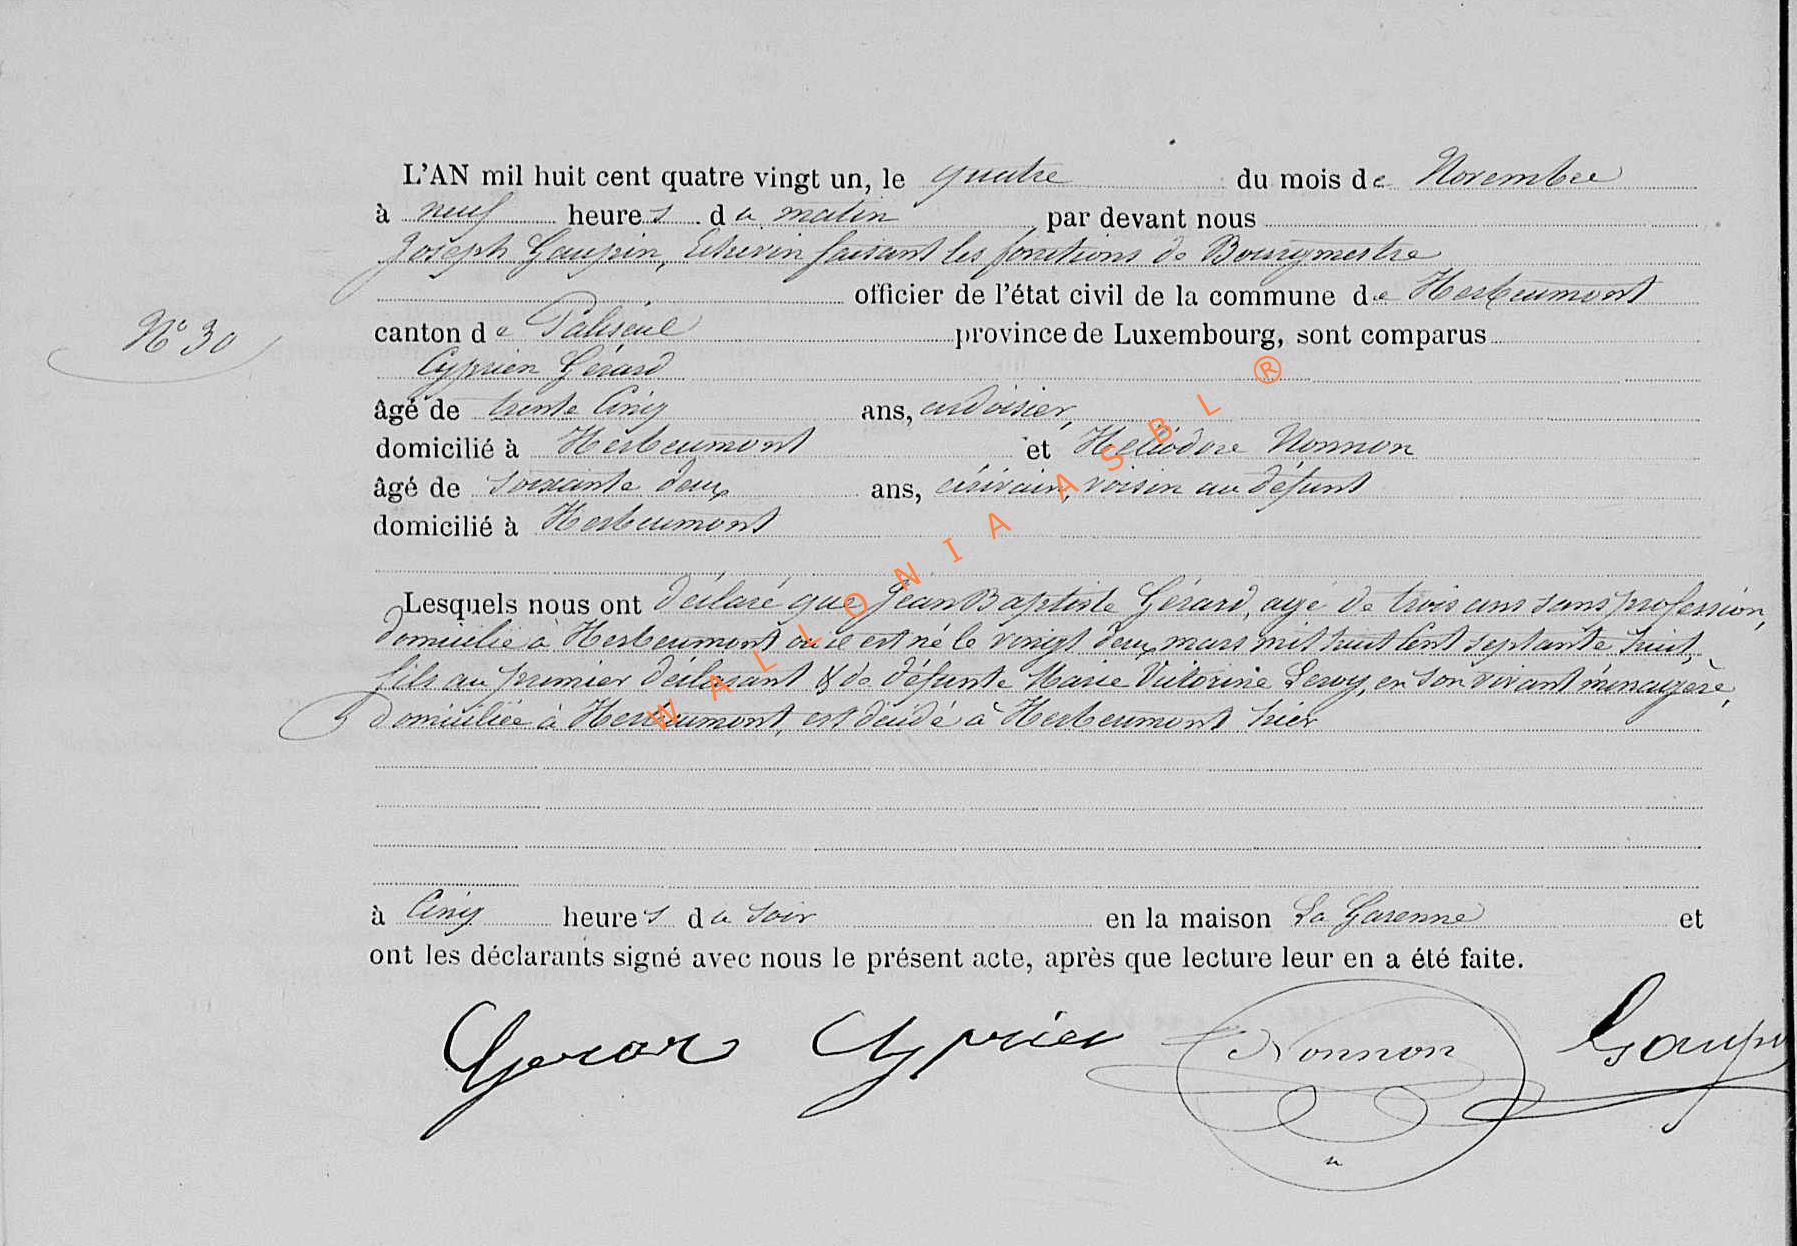 L'AN mil huit cent quatre vingt un, le quatre du mois de Novembre
à neuf heures du matin par devant nous
Joseph Gaupin, Echevin faisant les fonctions de Bourgmestre
officier de l'état civil de la commune de Herbeumont
N° 30
canton de Paliseul province de Luxembourg, sont comparus
Cyprien Gérard
âgé de trente cinq ans, ardoisier,
domicilié à Herbeumont et Héliodore Nonnon
âgé de soixante deux ans, écrivain, voisin au défunt
domicilié à Herbeumont
Lesquels nous ont déclaré que Jean Baptiste Gérard, agé de trois ans sans profession,
domicilié à Herbeumont où il est né le vingt deux mars mil huit cent septante huit,
fils au premier déclarant & de défunte Marie Victorine Leroy, en son vivant ménagère,
domiciliée à Herbeumont, est décédé à Herbeumont hier
à cinq heures du soir en la maison La Garenne et
ont les déclarants signé avec nous le présent acte, après que lecture leur en a été faite.
Gerar Cyprien Nonnon Gaupin
WALLONIA ASBL ®